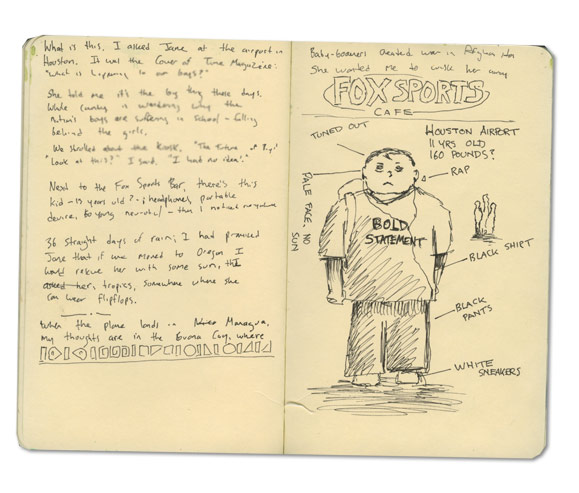 What is this, I asked Jane at the airport in
Houston. It was the cover of Time Magazine:
"What is happening to our boys?"
She told me it's the big thing these days.
While country is wondering why the
nation's boys are suffering in school - falling
behind the girls.
We strolled about the Kiosk. "The Future of
"Look at this?" I said. "I had no idea."
Next to the Fox Sports Bar, there's this
kid - 13 years old ? - headphones, portable
device,
36 straight days of rain; I had promised
Jane that if we moved to Oregon I
would rescue her with some sun, the
asked her, tropics, somewhere where she
can wear flipflops.
When the plane lands in Managua,
my thoughts are in the where
Baby-boomers created war in
She wanted me to whisk her away
FOX SPORTS
CAFE
TUNED OUT
HOUSTON AIRPORT
11 YRS OLD
160 POUNDS?
RAP
PALE FACE, NO
SUN
BOLD
STATEMENT
BLACK SHIRT
BLACK
PANTS
WHITE
SNEAKERS